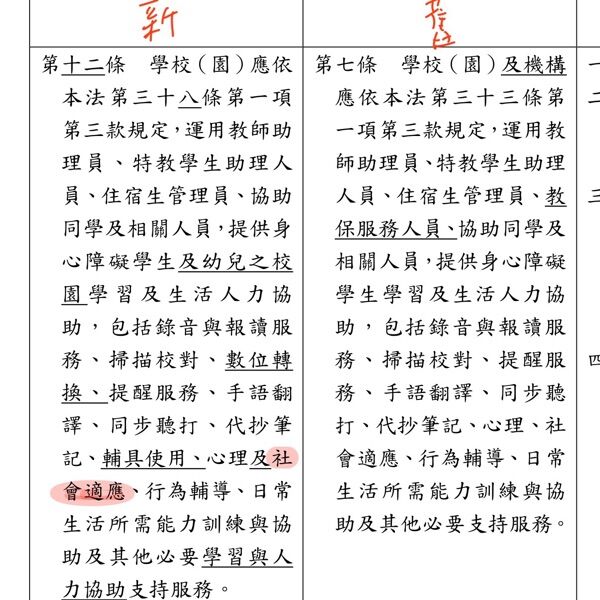 新
第十二條　學校（園）應依
本法第三十八條第一項
第三款規定，運用教師助
理員、特教學生助理人
員、住宿生管理員、協助
同學及相關人員，提供身
心障礙學生及幼兒之校
園學習及生活人力協
助，包括錄音與報讀服
務、掃描校對、數位轉
換、提醒服務、手語翻
譯、同步聽打、代抄筆
記、輔具使用、心理及社
會適應、行為輔導、日常
生活所需能力訓練與協
助及其他必要學習與人
力協助支持服務。
第七條　學校（園）及機構
應依本法第三十三條第
一項第三款規定，運用教
師助理員、特教學生助理
人員、住宿生管理員、教
保服務人員、協助同學及
相關人員，提供身心障礙
學生學習及生活人力協
助，包括錄音與報讀服
務、掃描校對、提醒服
務、手語翻譯、同步聽
打、代抄筆記、心理、社
會適應、行為輔導、日常
生活所需能力訓練與協
助及其他必要支持服務。
一
二
三
四